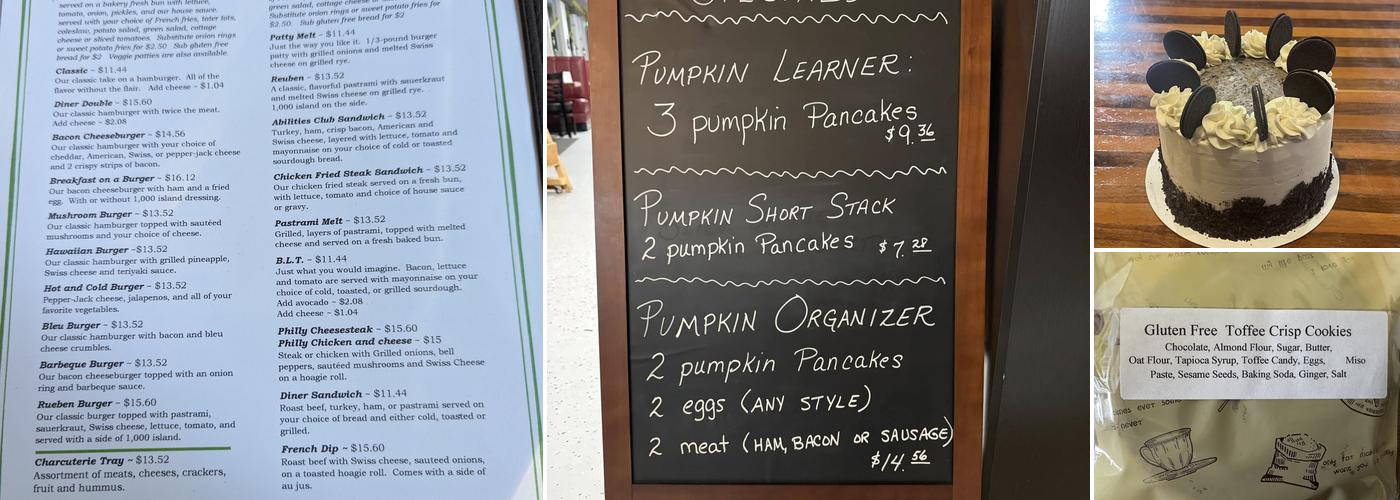 served on a bakery fresh bun with lettuce,
tomato, onion, pickles, and our house sauce.
served with your choice of French fries, tater tots,
coleslaw, potato salad, green salad, cottage
cheese or sliced tomatoes. Substitute onion rings
or sweet potato fries for $2.50 Sub gluten free
bread for $2 Veggie patties are also available.
Classic ~ $11.44
Our classic take on a hamburger. All of the
flavor without the flair. Add cheese ~ $1.04
Diner Double ~ $15.60
Our classic hamburger with twice the meat.
Add cheese ~ $2.08
Bacon Cheeseburger ~ $14.56
Our classic hamburger with your choice of
cheddar, American, Swiss, or pepper-jack cheese
and 2 crispy strips of bacon.
Breakfast on a Burger ~ $16.12
Our bacon cheeseburger with ham and a fried
egg. With or without 1,000 island dressing.
Mushroom Burger ~ $13.52
Our classic hamburger topped with sautéed
mushrooms and your choice of cheese.
Hawaiian Burger ~$13.52
Our classic hamburger with grilled pineapple,
Swiss cheese and teriyaki sauce.
Hot and Cold Burger ~ $13.52
Pepper-Jack cheese, jalapenos, and all of your
favorite vegetables.
Bleu Burger ~ $13.52
Our classic hamburger with bacon and bleu
cheese crumbles.
Barbeque Burger ~ $13.52
Our bacon cheeseburger topped with an onion
ring and barbeque sauce.
Rueben Burger ~ $15.60
Our classic burger topped with pastrami,
sauerkraut, Swiss cheese, lettuce, tomato, and
served with a side of 1,000 island.
Charcuterie Tray ~ $13.52
Assortment of meats, cheeses, crackers,
fruit and hummus.
green salad, cottage cheese
Substitute onion rings or sweet potato fries for
$2.50. Sub gluten free bread for $2
Patty Melt ~ $11.44
Just the way you like it. 1/3-pound burger
patty with grilled onions and melted Swiss
cheese on grilled rye.
Reuben ~ $13.52
A classic, flavorful pastrami with sauerkraut
and melted Swiss cheese on grilled rye.
1,000 island on the side.
Abilities Club Sandwich ~ $13.52
Turkey, ham, crisp bacon, American and
Swiss cheese, layered with lettuce, tomato and
mayonnaise on your choice of cold or toasted
sourdough bread.
Chicken Fried Steak Sandwich ~ $13.52
Our chicken fried steak served on a fresh bun,
with lettuce, tomato and choice of house sauce
or gravy.
Pastrami Melt ~ $13.52
Grilled, layers of pastrami, topped with melted
cheese and served on a fresh baked bun.
B.L.T. ~ $11.44
Just what you would imagine. Bacon, lettuce
and tomato are served with mayonnaise on your
choice of cold, toasted, or grilled sourdough.
Add avocado ~ $2.08
Add cheese ~ $1.04
Philly Cheesesteak ~ $15.60
Philly Chicken and cheese ~ $15
Steak or chicken with Grilled onions, bell
peppers, sautéed mushrooms and Swiss Cheese
on a hoagie roll.
Diner Sandwich ~ $11.44
Roast beef, turkey, ham, or pastrami served on
your choice of bread and either cold, toasted or
grilled.
French Dip ~ $15.60
Roast beef with Swiss cheese, sauteed onions,
on a toasted hoagie roll. Comes with a side of
au jus.
SPECIALS
PUMPKIN LEARNER:
3 pumpkin Pancakes
$9.36
PUMPKIN SHORT STACK
2 pumpkin Pancakes $7.28
PUMPKIN ORGANIZER
2 pumpkin Pancakes
2 eggs (ANY STYLE)
2 meat (HAM, BACON OR SAUSAGE)
$14.56
Gluten Free Toffee Crisp Cookies
Chocolate, Almond Flour, Sugar, Butter,
Oat Flour, Tapioca Syrup, Toffee Candy, Eggs, Miso
Paste, Sesame Seeds, Baking Soda, Ginger, Salt